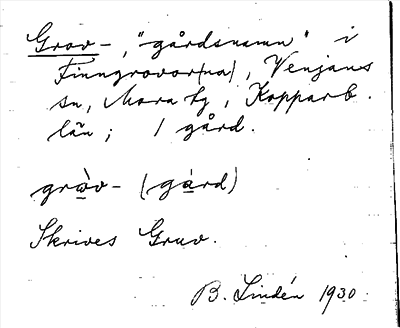 Grov-, "gårdsnamn" i
Finngrovor(na), Venjans
sn, Mora tg, Kopparb.
län; 1 gård.
grὼ̣v- (gá̱rd)
Skrives Gruv.
B. Lindén 1930